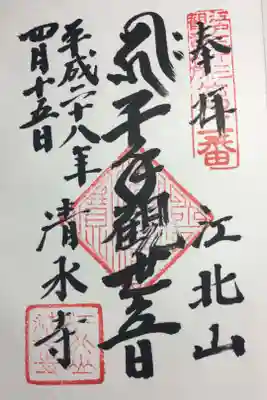 奉拝
江北山
千手觀世音
清水寺
平成二十八年
四月十五日